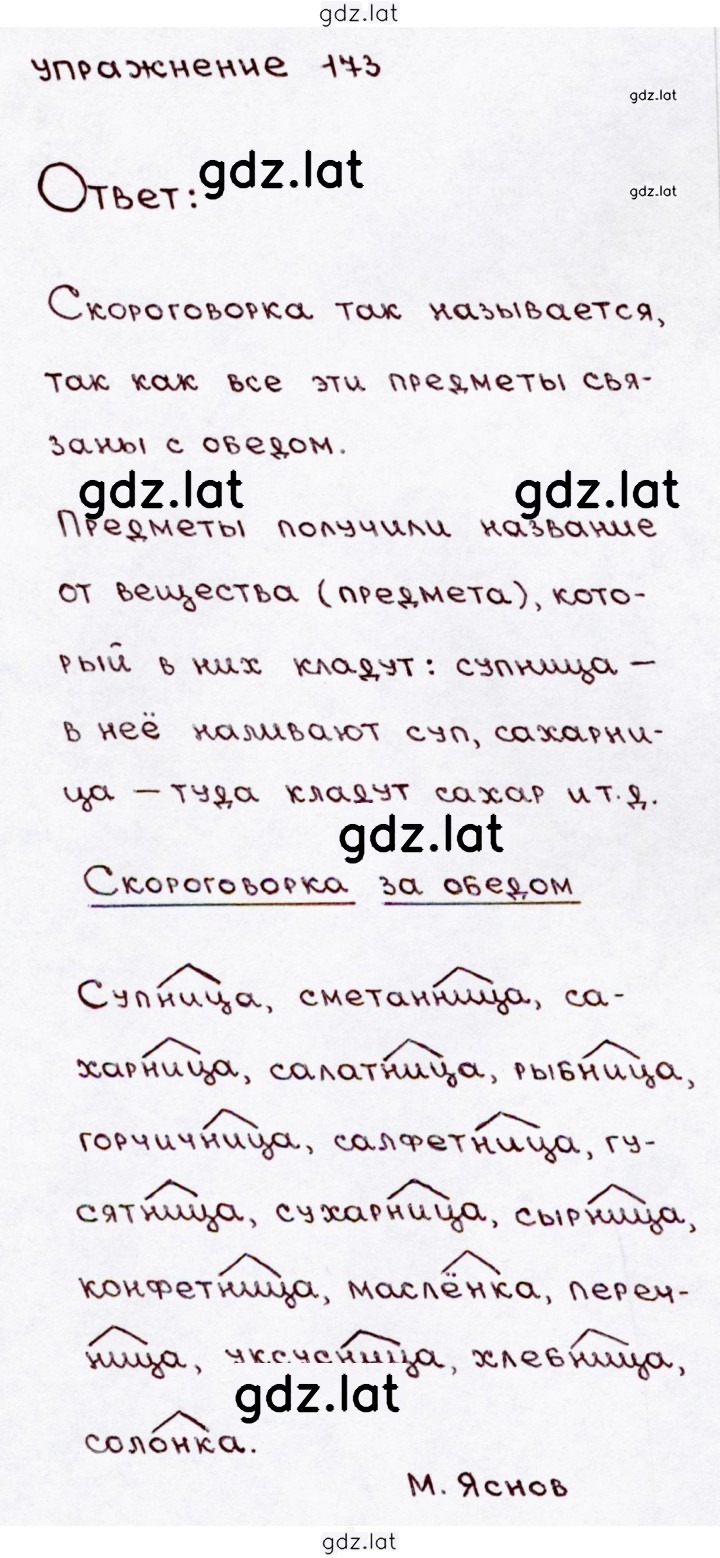 gdz.lat
упражнение 173
gdz.lat
Ответ: gdz.lat
gdz.lat
Скороговорка так называется,
так как все эти предметы свя-
заны с обедом.
gdz.lat gdz.lat
Предметы получили название
от вещества (предмета), кото-
рый в них кладут: супница –
в неё наливают суп, сахарни-
ца – туда кладут сахар и т.д.
gdz.lat
Скороговорка за обедом
Супница, сметанница, са-
харница, салатница, рыбница,
горчичница, салфетница, гу-
сятница, сухарница, сырница,
конфетница, маслёнка, переч-
ница, уксусница, хлебница,
gdz.lat
солонка.
М. Яснов
gdz.lat